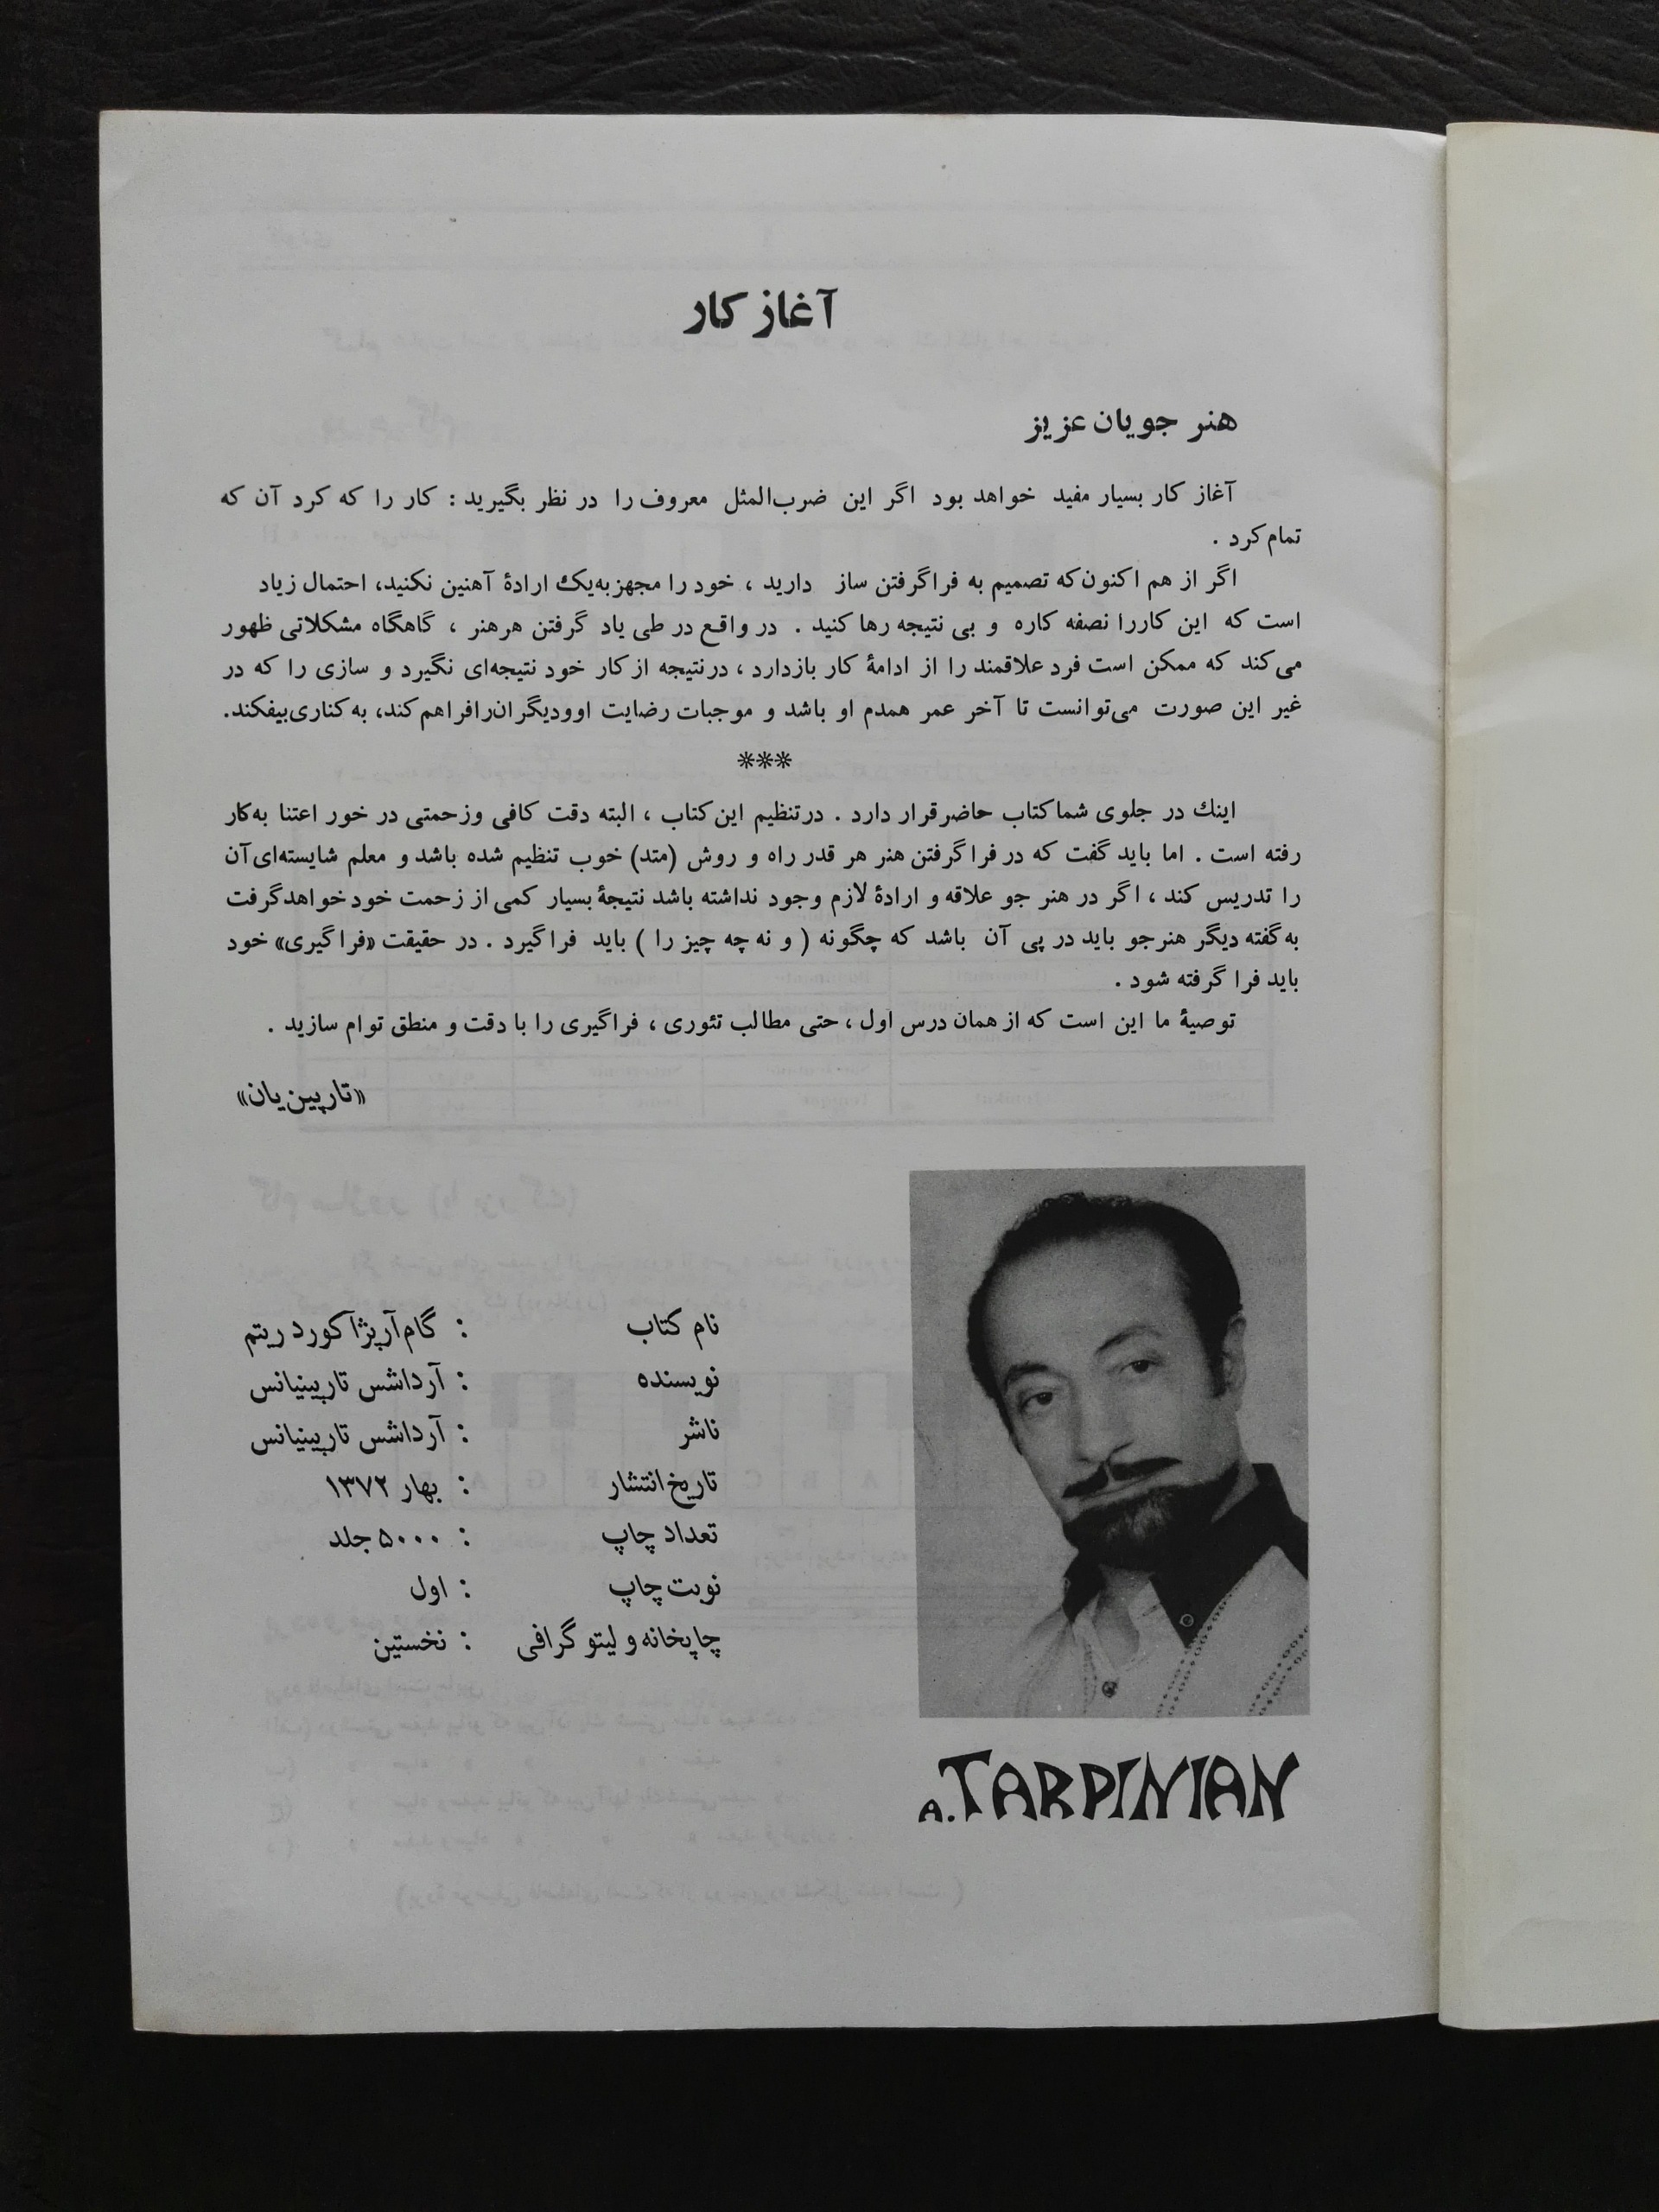 آغاز کار
هنر جویان عزیز
آغاز کار بسیار مفید خواهد بود اگر این ضرب‌المثل معروف را در نظر بگیرید : کار را که کرد آن که
تمام کرد .
اگر از هم اکنون که تصمیم به فراگرفتن ساز دارید ، خود را مجهز به‌یک ارادهٔ آهنین نکنید، احتمال زیاد
است که این کاررا نصفه کاره و بی نتیجه رها کنید . در واقع در طی یاد گرفتن هرهنر ، گاهگاه مشکلاتی ظهور
می‌کند که ممکن است فرد علاقمند را از ادامهٔ کار بازدارد ، درنتیجه از کار خود نتیجه‌ای نگیرد و سازی را که در
غیر این صورت می‌توانست تا آخر عمر همدم او باشد و موجبات رضایت اوودیگران‌رافراهم‌کند، به کناری‌بیفکند.
***
اینك در جلوی شما کتاب حاضر قرار دارد . درتنظیم این کتاب ، البته دقت کافی وزحمتی در خور اعتنا به‌کار
رفته است . اما باید گفت که در فرا گرفتن هنر هر قدر راه و روش (متد) خوب تنظیم شده باشد و معلم شایسته‌ای آن
را تدریس کند ، اگر در هنر جو علاقه و ارادهٔ لازم وجود نداشته باشد نتیجهٔ بسیار کمی از زحمت خود خواهدگرفت
به گفته دیگر هنرجو باید در پی آن باشد که چگونه ( و نه چه چیز را ) باید فراگیرد . در حقیقت «فرا گیری» خود
باید فرا گرفته شود .
توصیهٔ ما این است که از همان درس اول ، حتی مطالب تئوری ، فراگیری را با دقت و منطق توام سازید .
«تارپین‌یان»
نام کتاب : گام‌آرپژآکورد ریتم
نویسنده : آرداشس تارپینیانس
ناشر : آرداشس تارپینیانس
تاریخ‌انتشار : بهار ۱۳۷۲
تعداد چاپ : ۵۰۰۰ جلد
نوبت چاپ : اول
چاپخانه و لیتو گرافی : نخستین
A. TARPINIAN